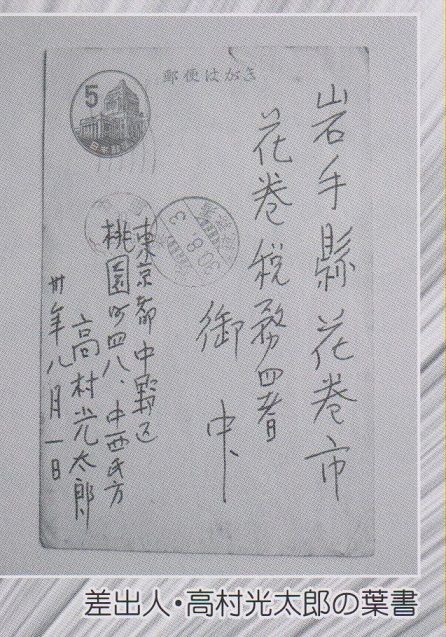 郵便はがき
5
日本郵便
岩手縣花巻市
花巻税務署
御中
30.8.3
東京都中野区
桃園町四八、中西氏方
高村光太郎
卅年八月一日
差出人・高村光太郎の葉書